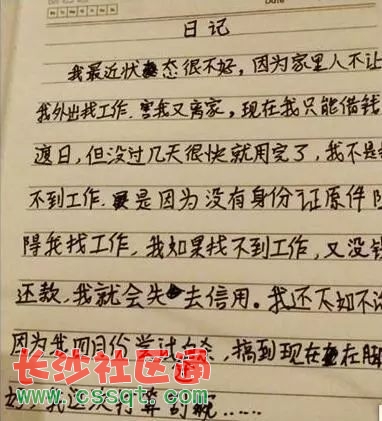 Date
日记
我最近状态很不好,因为家里人不让
我外出找工作.害我又离家,现在我只能借钱
渡日,但没过几天很快就用完了,我不是找
不到工作.是因为没有身份证原件
得我找工作,我如果找不到工作,又没钱
还款,我就会失去信用。我还不如不
因为我四月份尝试自杀,搞到现在在脚
长沙社区通
好,我这次打算
www.cssqt.com